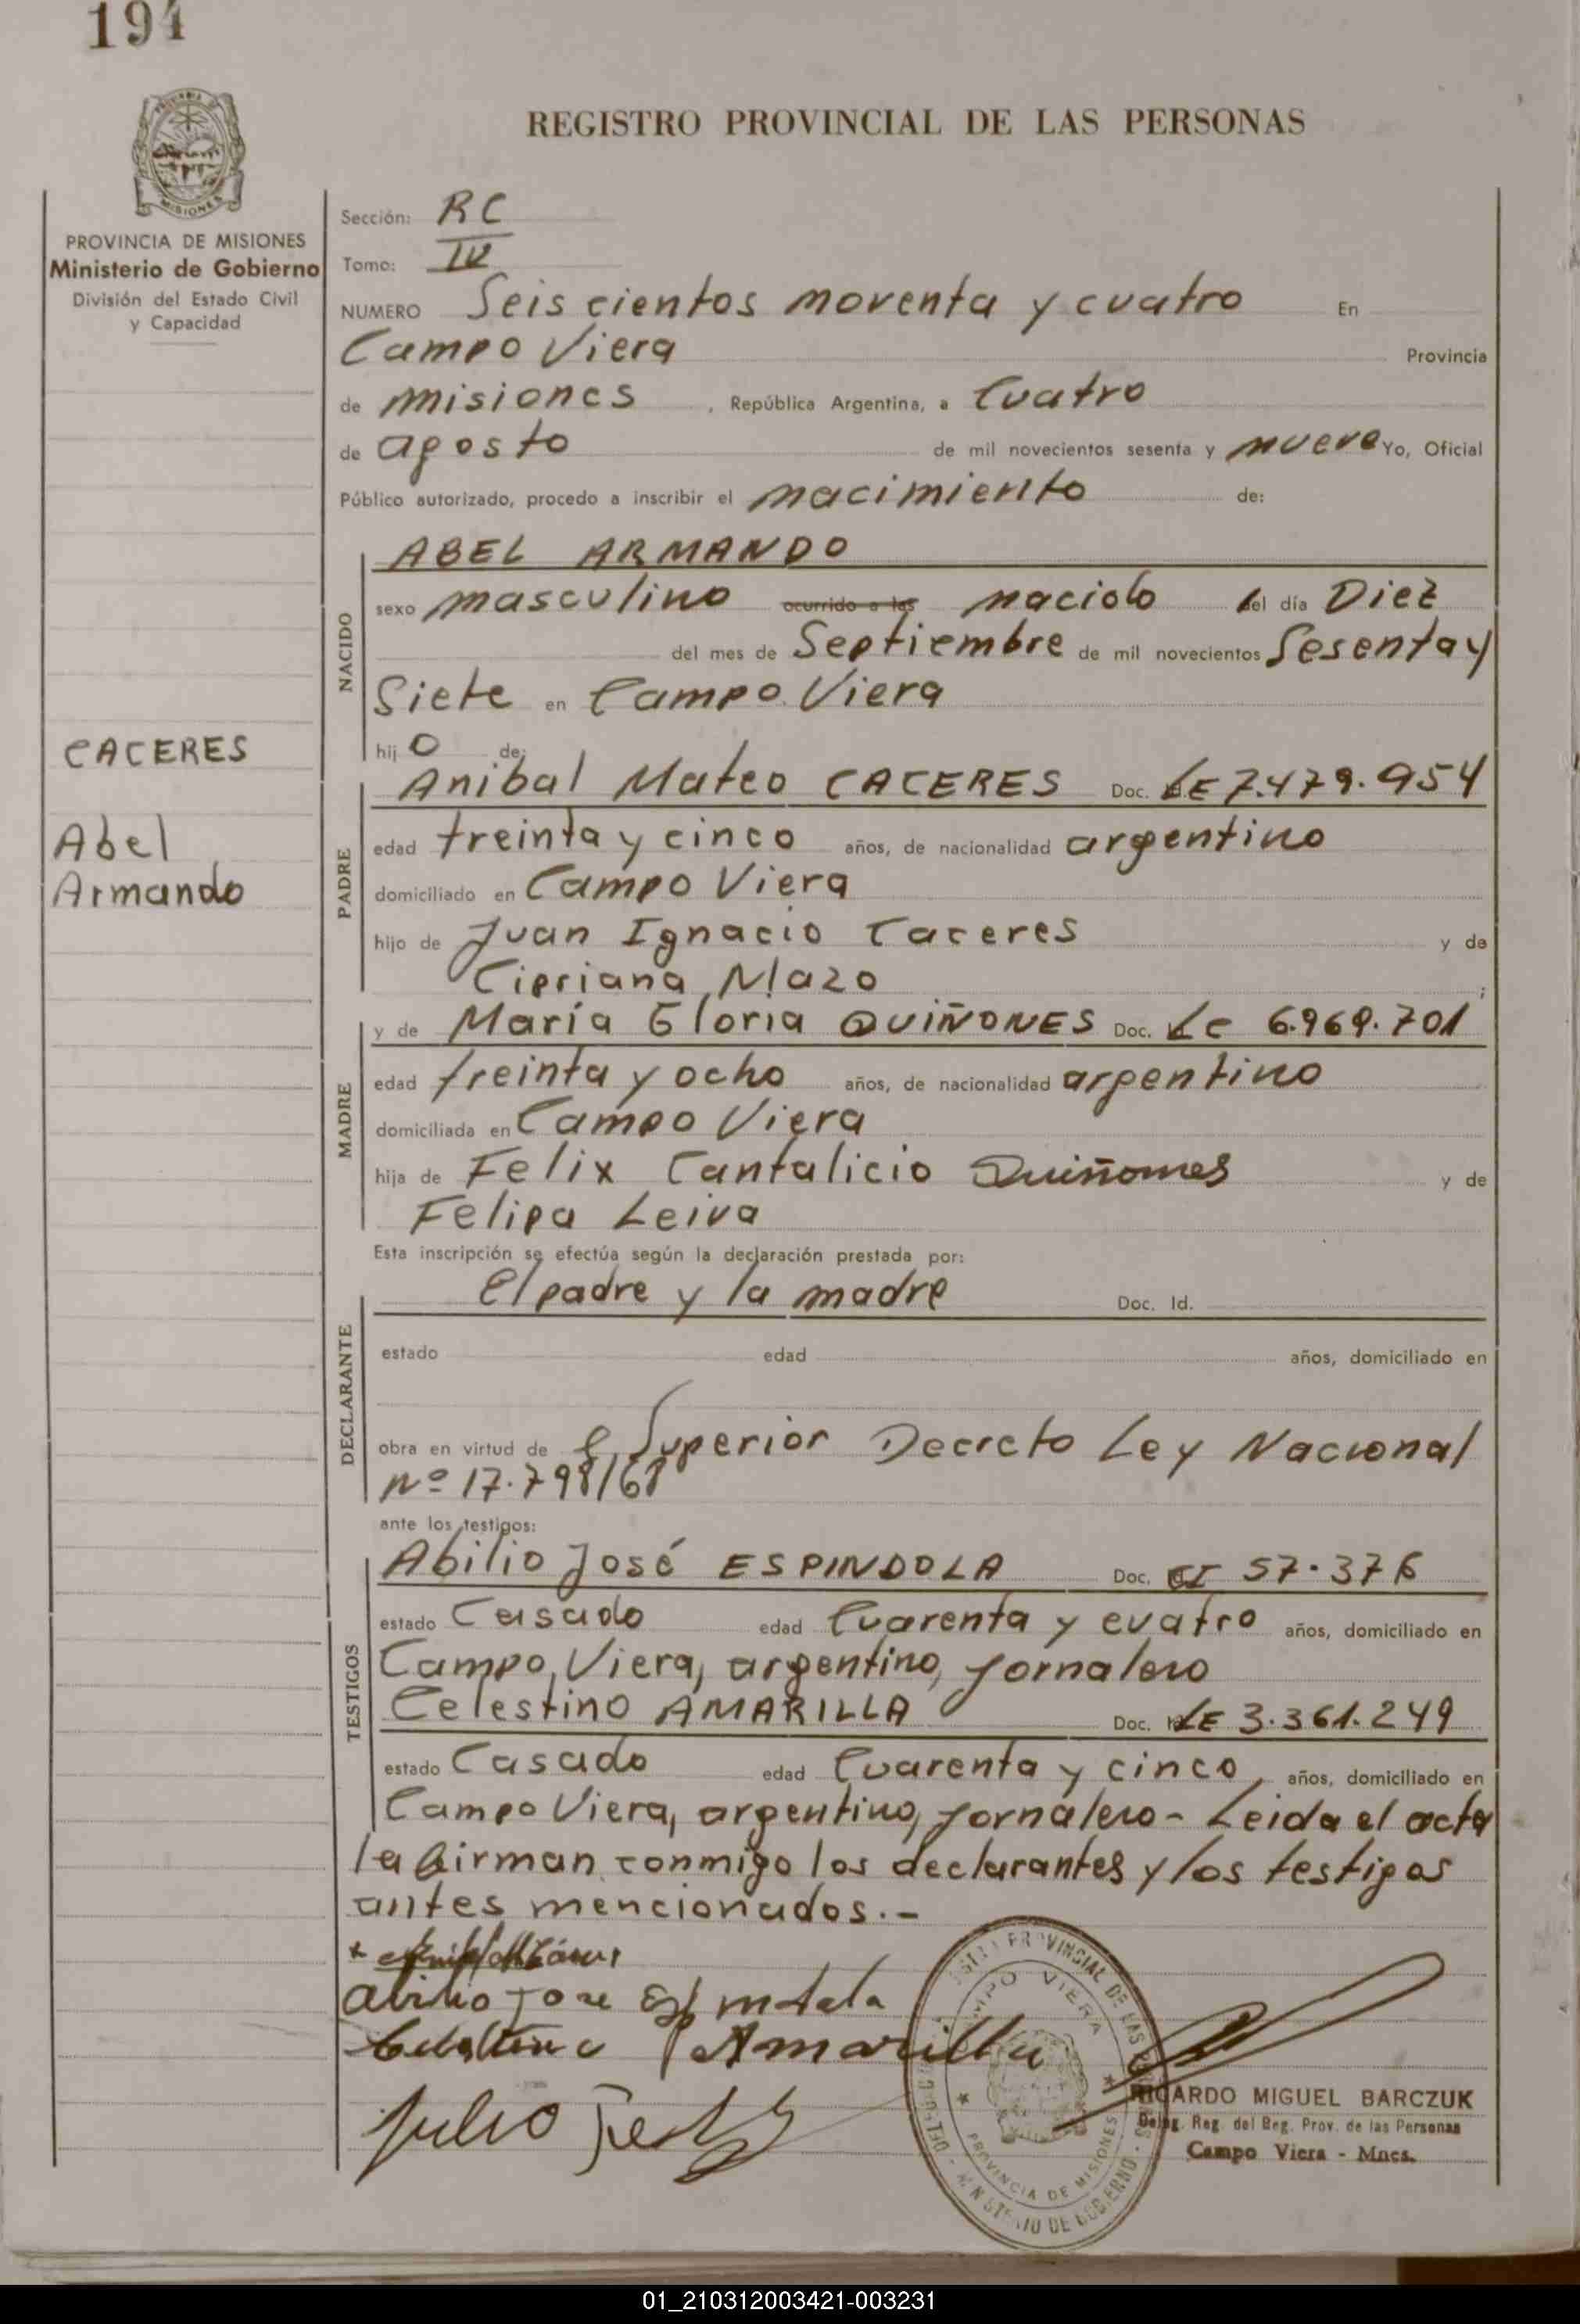 194
REGISTRO PROVINCIAL DE LAS PERSONAS
MISIONES
PROVINCIA DE MISIONES
Ministerio de Gobierno
División del Estado Civil
y Capacidad
CACERES
Abel
Armando
Sección: RC
Tomo: IV
NUMERO Seiscientos noventa y cuatro En
Campo Viera Provincia
de misiones, República Argentina, a Cuatro
de agosto de mil novecientos sesenta y nueve Yo, Oficial
Público autorizado, procedo a inscribir el nacimiento de:
NACIDO
ABEL ARMANDO
sexo masculino ocurrido a las nacido el día Diez
del mes de Septiembre de mil novecientos Sesenta y
Siete en Campo Viera
hijo de:
PADRE
Anibal Mateo CACERES Doc. LE 7.479.954
edad treinta y cinco años, de nacionalidad argentino
domiciliado en Campo Viera
hijo de Juan Ignacio Caceres y de
Cipriana Mazo ;
MADRE
y de María Gloria QUIÑONES Doc. LC 6.969.701
edad treinta y ocho años, de nacionalidad argentino
domiciliada en Campo Viera
hija de Felix Cantalicio Quiñones y de
Felipa Leiva
Esta inscripción se efectúa según la declaración prestada por:
DECLARANTE
El padre y la madre Doc. Id.
estado edad años, domiciliado en
obra en virtud de Superior Decreto Ley Nacional
nº 17.798/68
ante los testigos:
TESTIGOS
Abilio José ESPINDOLA Doc. CI 57.376
estado Casado edad Cuarenta y cuatro años, domiciliado en
Campo Viera, argentino, jornalero
Celestino AMARILLA Doc. LE 3.361.249
estado Casado edad Cuarenta y cinco, años, domiciliado en
Campo Viera, argentino, jornalero - Leida el acta
la firman conmigo los declarantes y los testigos
antes mencionados.-
Amarilla
Julio
CAMPO VIERA
PROVINCIA DE MISIONES
MINISTERIO DE GOBIERNO
RICARDO MIGUEL BARCZUK
Deleg. Reg. del Reg. Prov. de las Personas
Campo Viera - Mnes.
01_210312003421-003231